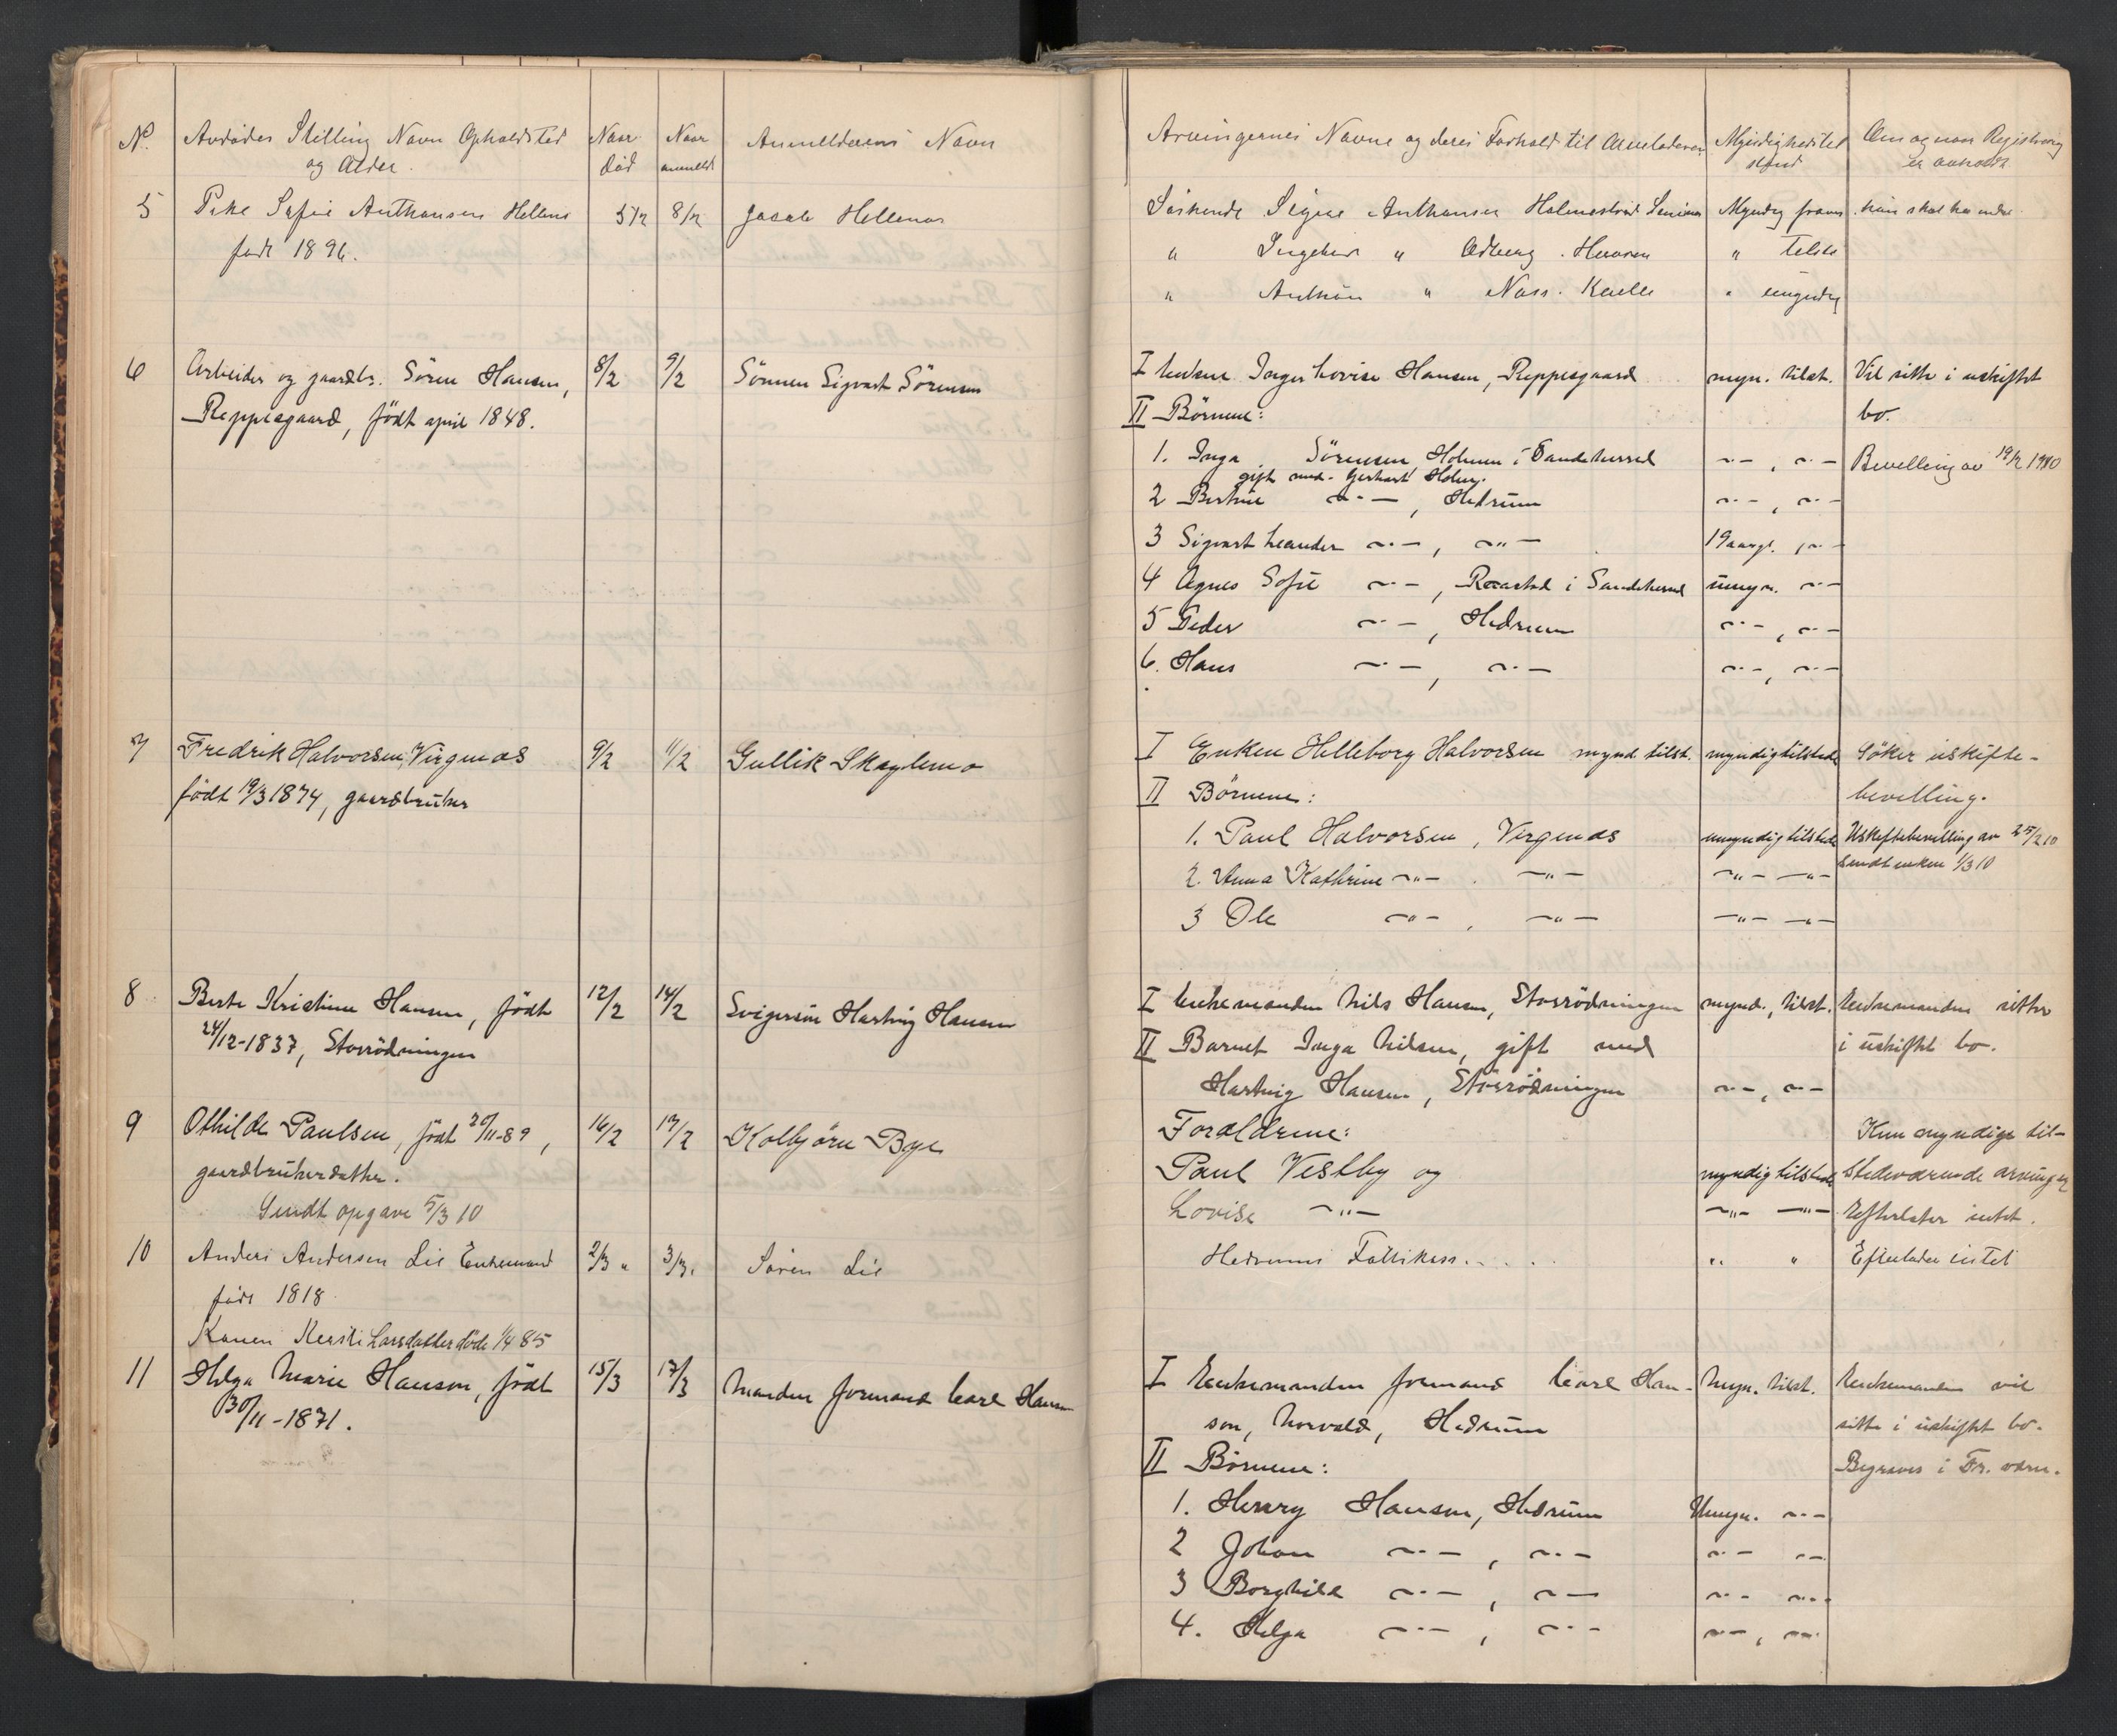 No. Avdødes Stilling Navn Opholdsted og Alder. Naar død Naar anmeldt Anmelderens Navn
5 Pike Sofie Anthonsen Hellenes 5/2 8/2 Jacob Hellenes
født 1896.
6 Arbeider og gaardbr. Sören Hansen, 8/2 9/2 Sönnen Sigvart Sörensen
Reppesgaard, født april 1848.
7 Fredrik Halvorsen, Virgenæs 9/2 11/2 Gullik Skaglemo
født 19/3 1874, gaardbruker
8 Berte Kristine Hansen, født 12/2 14/2 Svigersøn Hartvig Hansen
24/12-1837, Storrödningen
9 Othilde Paulsen, født 20/11-89, 16/2 17/2 Kolbjørn Bye
gaardbrukerdatter.
Sendt opgave 5/3 10
10 Anders Andersen Lie Enkemand 2/3 " 3/3. Søren Lie
født 1818.
Konen Kersti Larsdatter døde 1/4 85
11 Helga Marie Hansen, født 15/3 17/3 Manden formand Carl Hansen
30/11-1871.
Arvingernes Navne og deres Forhold til Avdøde Myndighedstilstand Om og naar Registrering er avholdt
Søskende Signe Anthonsen Holmestrand Myndig
" Ingebor " Odberg. Hedrum " Tilste
" Anthon " Næss. " umyndig
I Enken Inger Lovise Hansen, Reppesgaard myn. tilst. Vil sitte i uskiftet
II Börnene: bo.
1. Inga Sörensen Holmen i Sandeherred -"- , -"- Bevilling av 19/2 1910
gift med Gerhart Holmen.
2 Bertine -"- , Hedrum -"- , -"-
3 Sigvart Leander -"- , -"- 19 aargl. , -"-
4 Agnes Sofie -"- , Raastad i Sandeherred umyn. -"-
5 Peder -"- , Hedrum -"- , -"-
6. Hans -"- , -"- -"- , -"-
I Enken Helleborg Halvorsen mynd. tilst. myndig tilstede Söker uskifte-
II Börnene: bevilling.
1. Paul Halvorsen, Virgenæs umyndig tilstede Uskiftebevilling av 25/2 10
2. Anna Kathrine -"- . -"- -"- -"- sendt enken 1/3 10
3 Ole -"- , -"- -"- -"-
I Enkemanden Nils Hansen, Storrödningen mynd., tilst. Enkemanden sitter
II Barnet Inga Nilsen, gift med i uskiftet bo.
Hartvig Hansen, Storrödningen -"- , -"-
Forældrene: Kun myndige til-
Paul Vestby og myndig tilstede stedeværende arvinger
Lovise -"- -"- -"- Efterlater intet.
Hedrums Fattikass. . . . . " " Efterlader intet
I Enkemanden formand Carl Han- Myn. tilst. Enkemanden vil
sen, Norvald, Hedrum sitte i uskiftet bo.
II Börnene: Begraves i Fr. værn.
1. Henry Hansen, Hedrum Umyn. -"-
2 Johan -"- , -"- -"- -"-
3 Borghild -"- , -"- -"- -"-
4. Helga -"- , -"- -"- , -"-